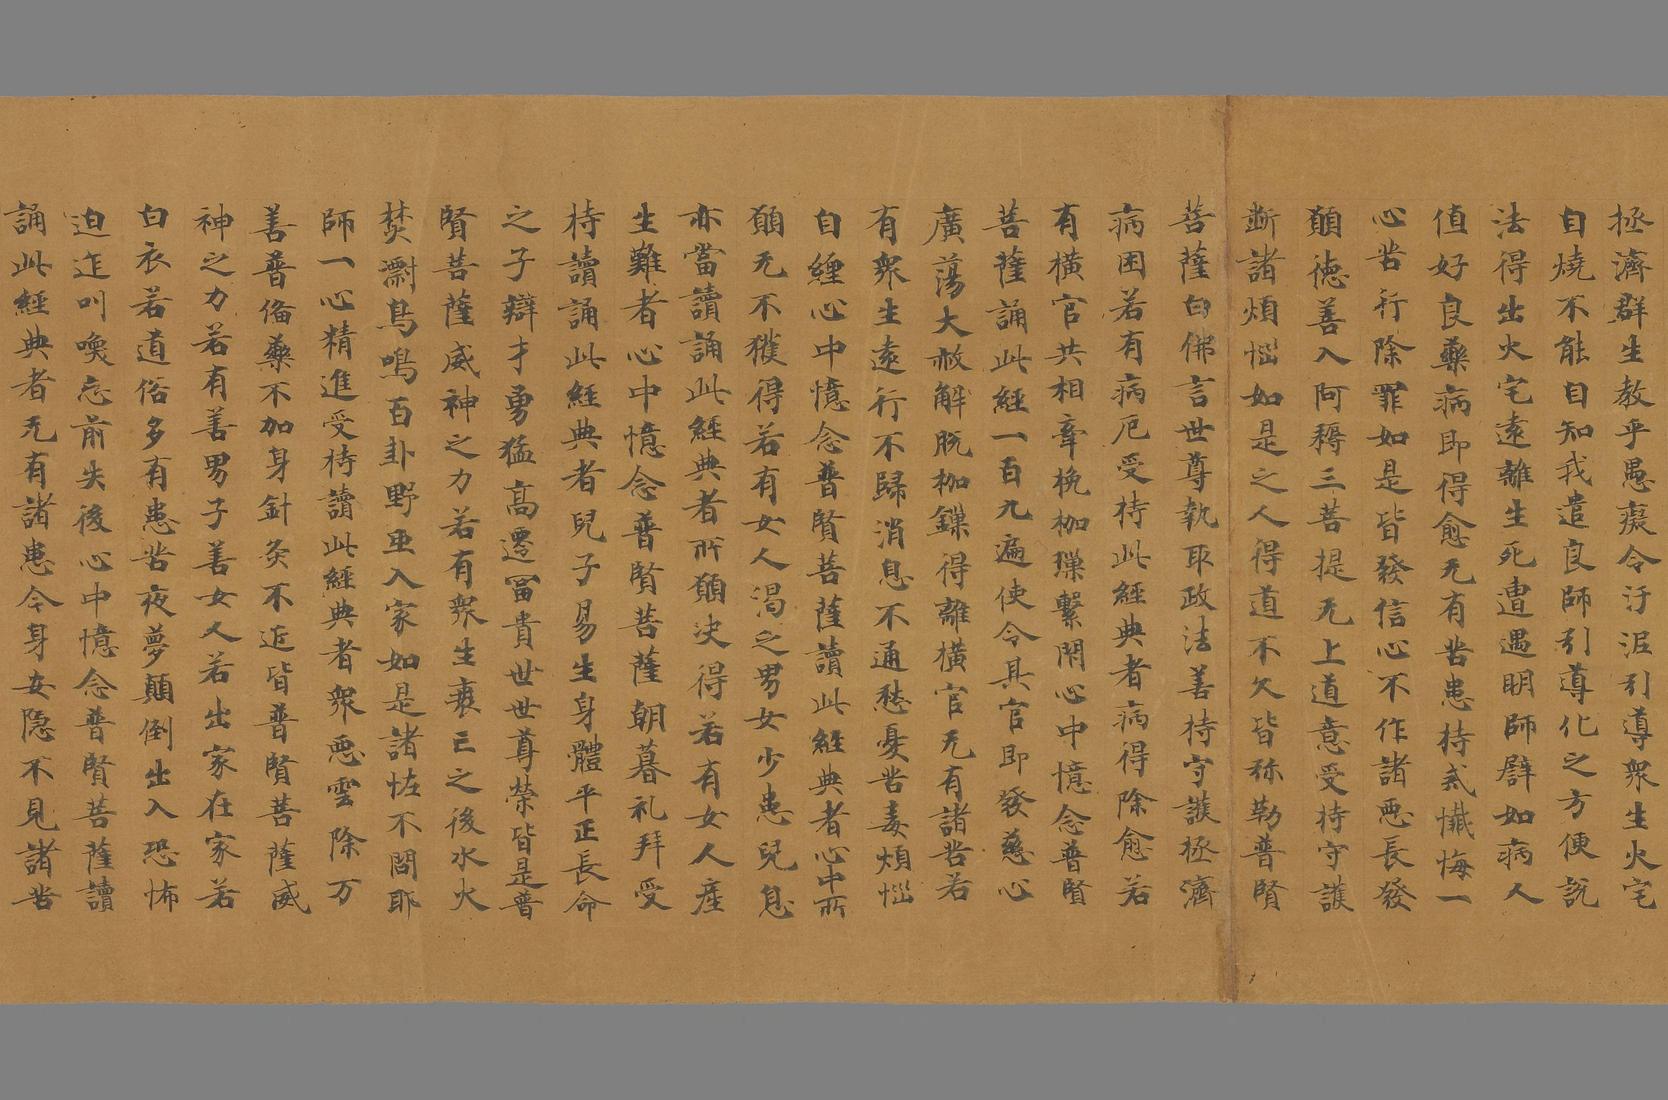 拯濟群生教乎愚癡令汙泥引導衆生火宅
自燒不能自知我遣良師引導化之方便說
法得出火宅遠離生死遭遇明師譬如病人
值好良藥病即得愈无有苦患持戒懺悔一
心苦行除罪如是皆發信心不作諸惡長發
願德善入阿耨三菩提无上道意受持守護
斷諸煩惱如是之人得道不久皆弥勒普賢
菩薩白佛言世尊執取政法善持守護拯濟
病困若有病厄受持此經典者病得除愈若
有橫官共相牽挽枷璅繫閇心中憶念普賢
菩薩誦此經一百九遍使令具官即發慈心
廣蕩大赦解脫枷鏁得離橫官无有諸苦若
有衆生遠行不歸消息不通愁憂苦毒煩惱
自纏心中憶念普賢菩薩讀此經典者心中所
願无不獲得若有女人渴之男女少患兒息
亦當讀誦此經典者所願決得若有女人産
生難者心中憶念普賢菩薩朝暮礼拜受
持讀誦此經典者兒子易生身體平正長命
之子辯才勇猛高遷冨貴世世尊榮皆是普
賢菩薩威神之力若有衆生喪亡之後水火
焚漂鳥鳴百卦野𠀍入家如是諸恠不問耶
師一心精進受持讀此經典者衆惡雲除万
善普俻藥不加身針灸不近皆普賢菩薩威
神之力若有善男子善女人若出家在家若
白衣若道俗多有患苦夜夢顛倒出入恐怖
迫迮叫喚忘前失後心中憶念普賢菩薩讀
誦此經典者无有諸患令身安隱不見諸苦